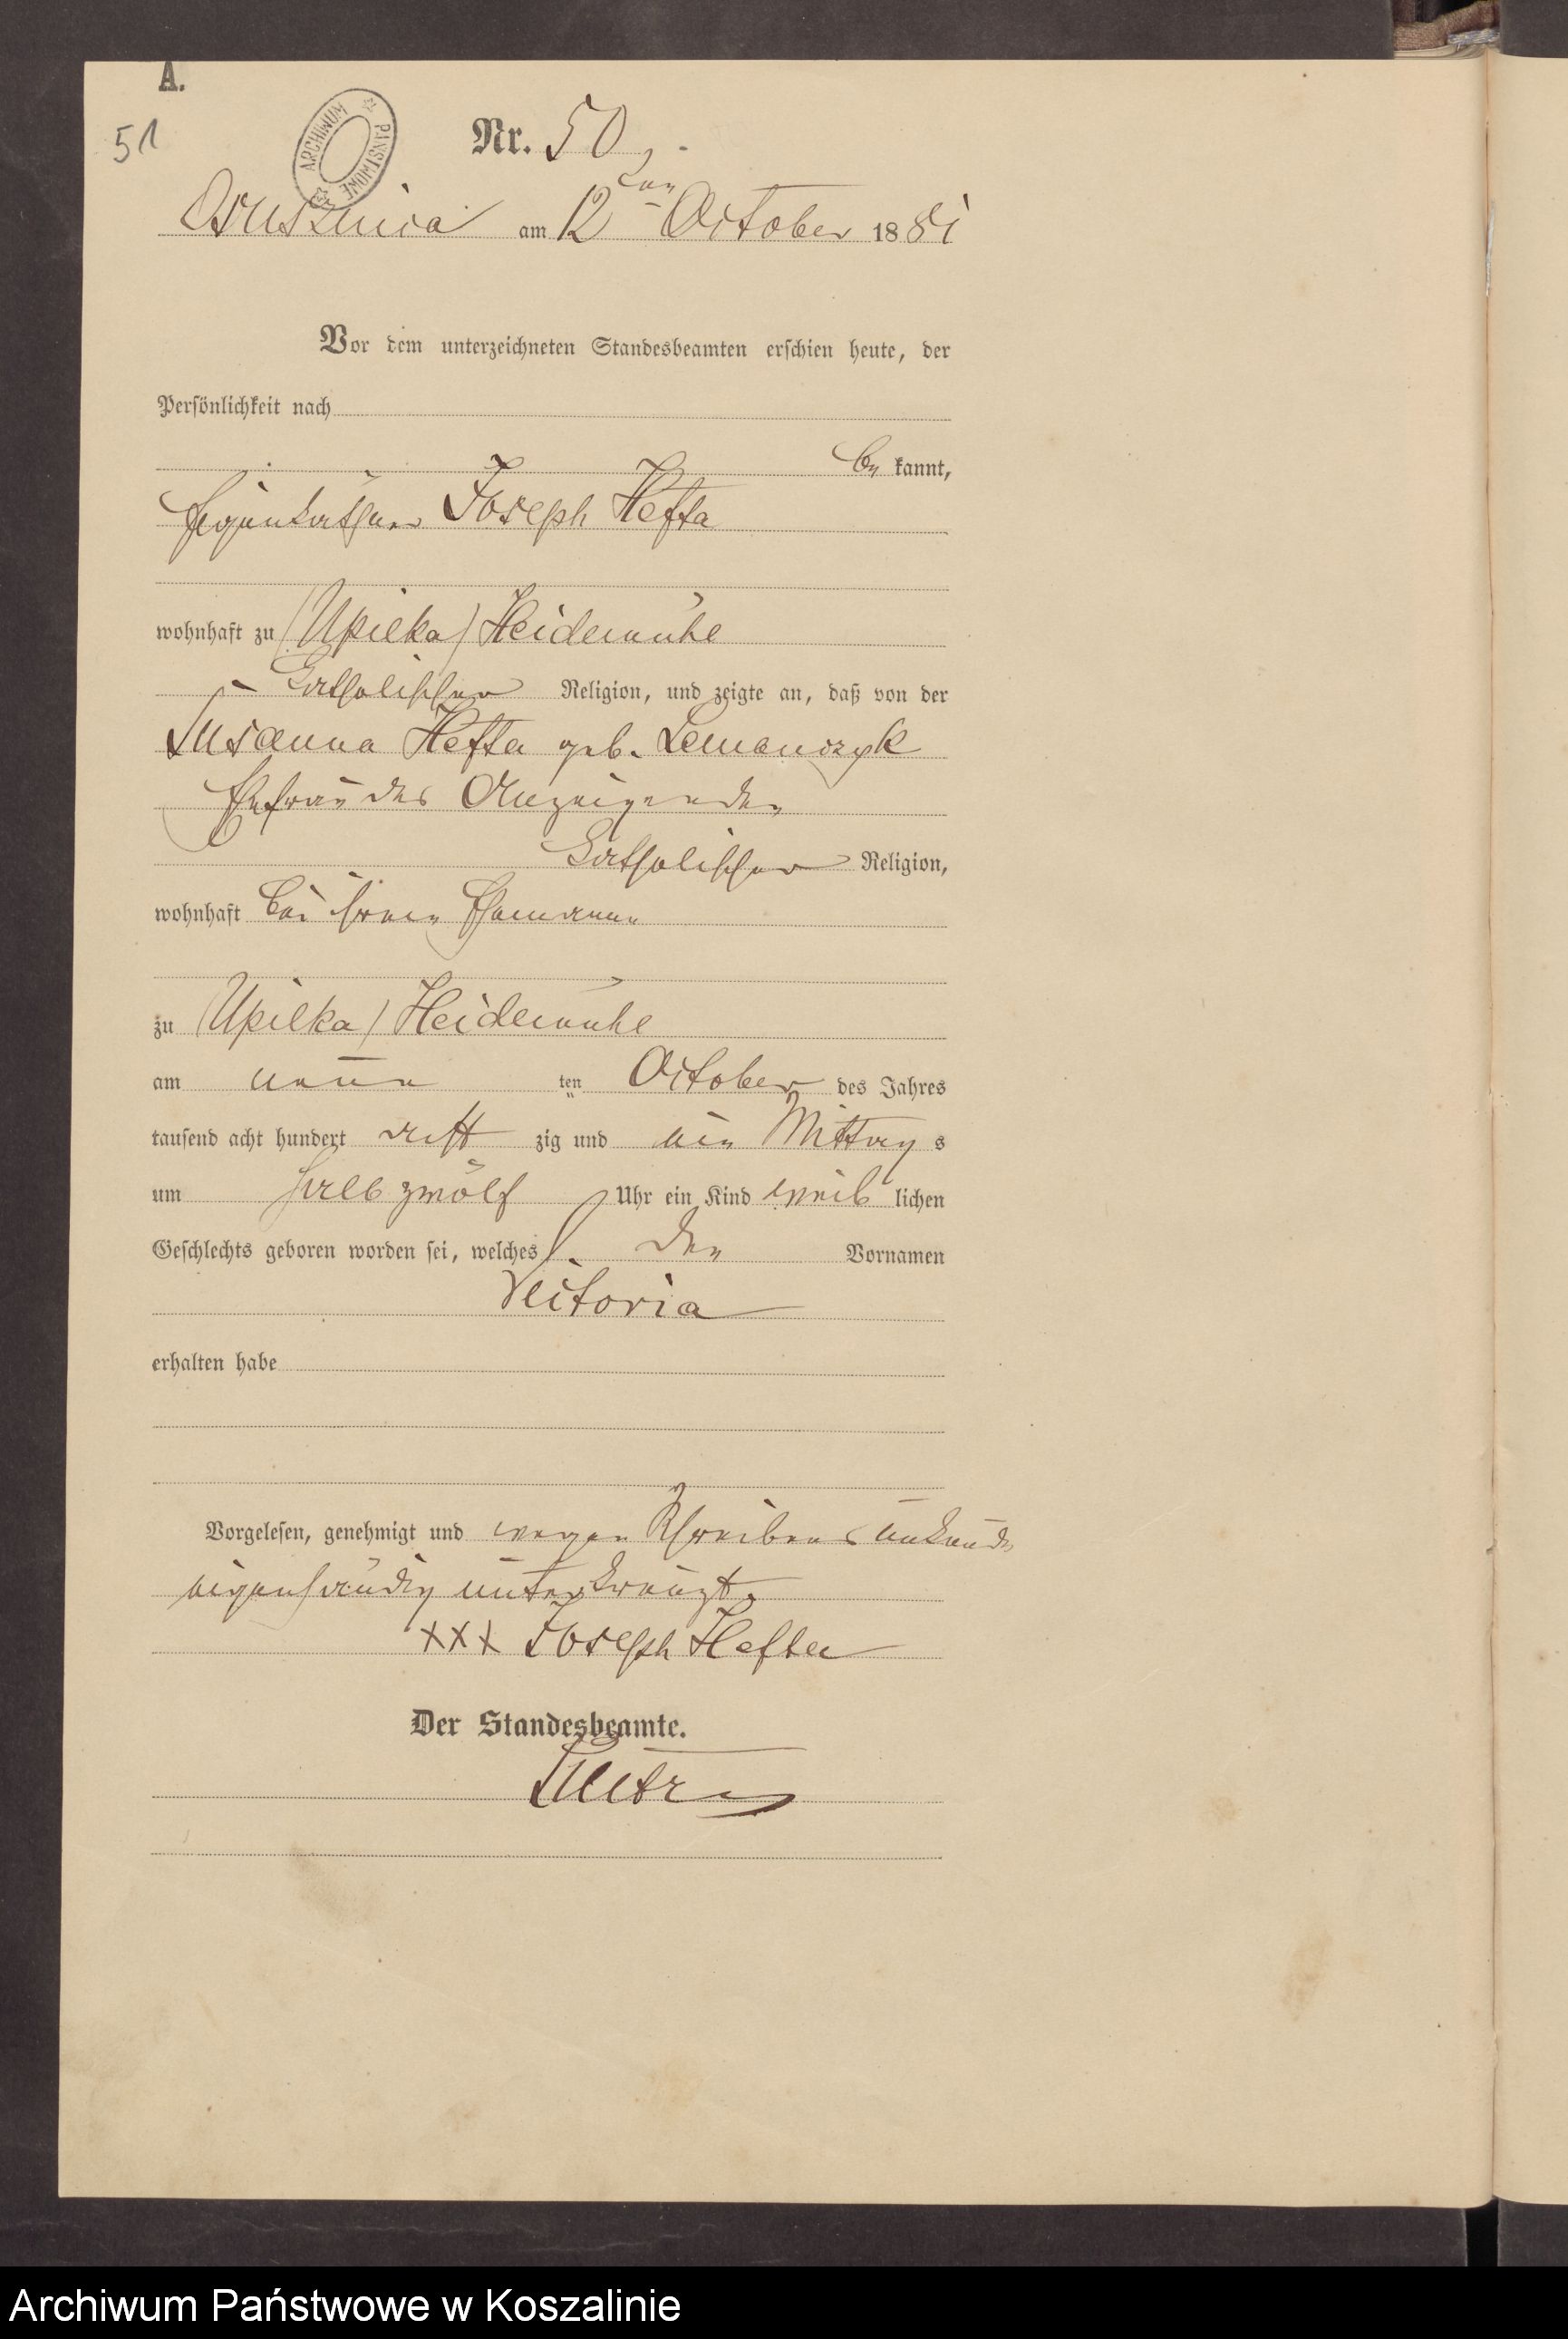 A.
51
ARCHIWUM PAŃSTWOWE
Nr. 50.
Osusznica am 12ten October 1881
Vor dem unterzeichneten Standesbeamten erschien heute, der
Persönlichkeit nach
be kannt,
Eigenkäthner Joseph Hefta
wohnhaft zu (Upilka) Heidemühl
katholischer Religion, und zeigte an, daß von der
Susanna Hefta geb. Lemanczyk
Ehefrau des Anzeigenden
katholischer Religion,
wohnhaft bei ihrem Ehemann
zu (Upilka) Heidemühl
am neun ten October des Jahres
tausend acht hundert acht zig und ein Mittag s
um halb zwölf Uhr ein Kind weib lichen
Geschlechts geboren worden sei, welches den Vornamen
Victoria
erhalten habe
Vorgelesen, genehmigt und wegen Schreibens unkunde
eigenhändig unterkreuzt.
XXX Joseph Hefta
Der Standesbeamte.
Archiwum Państwowe w Koszalinie